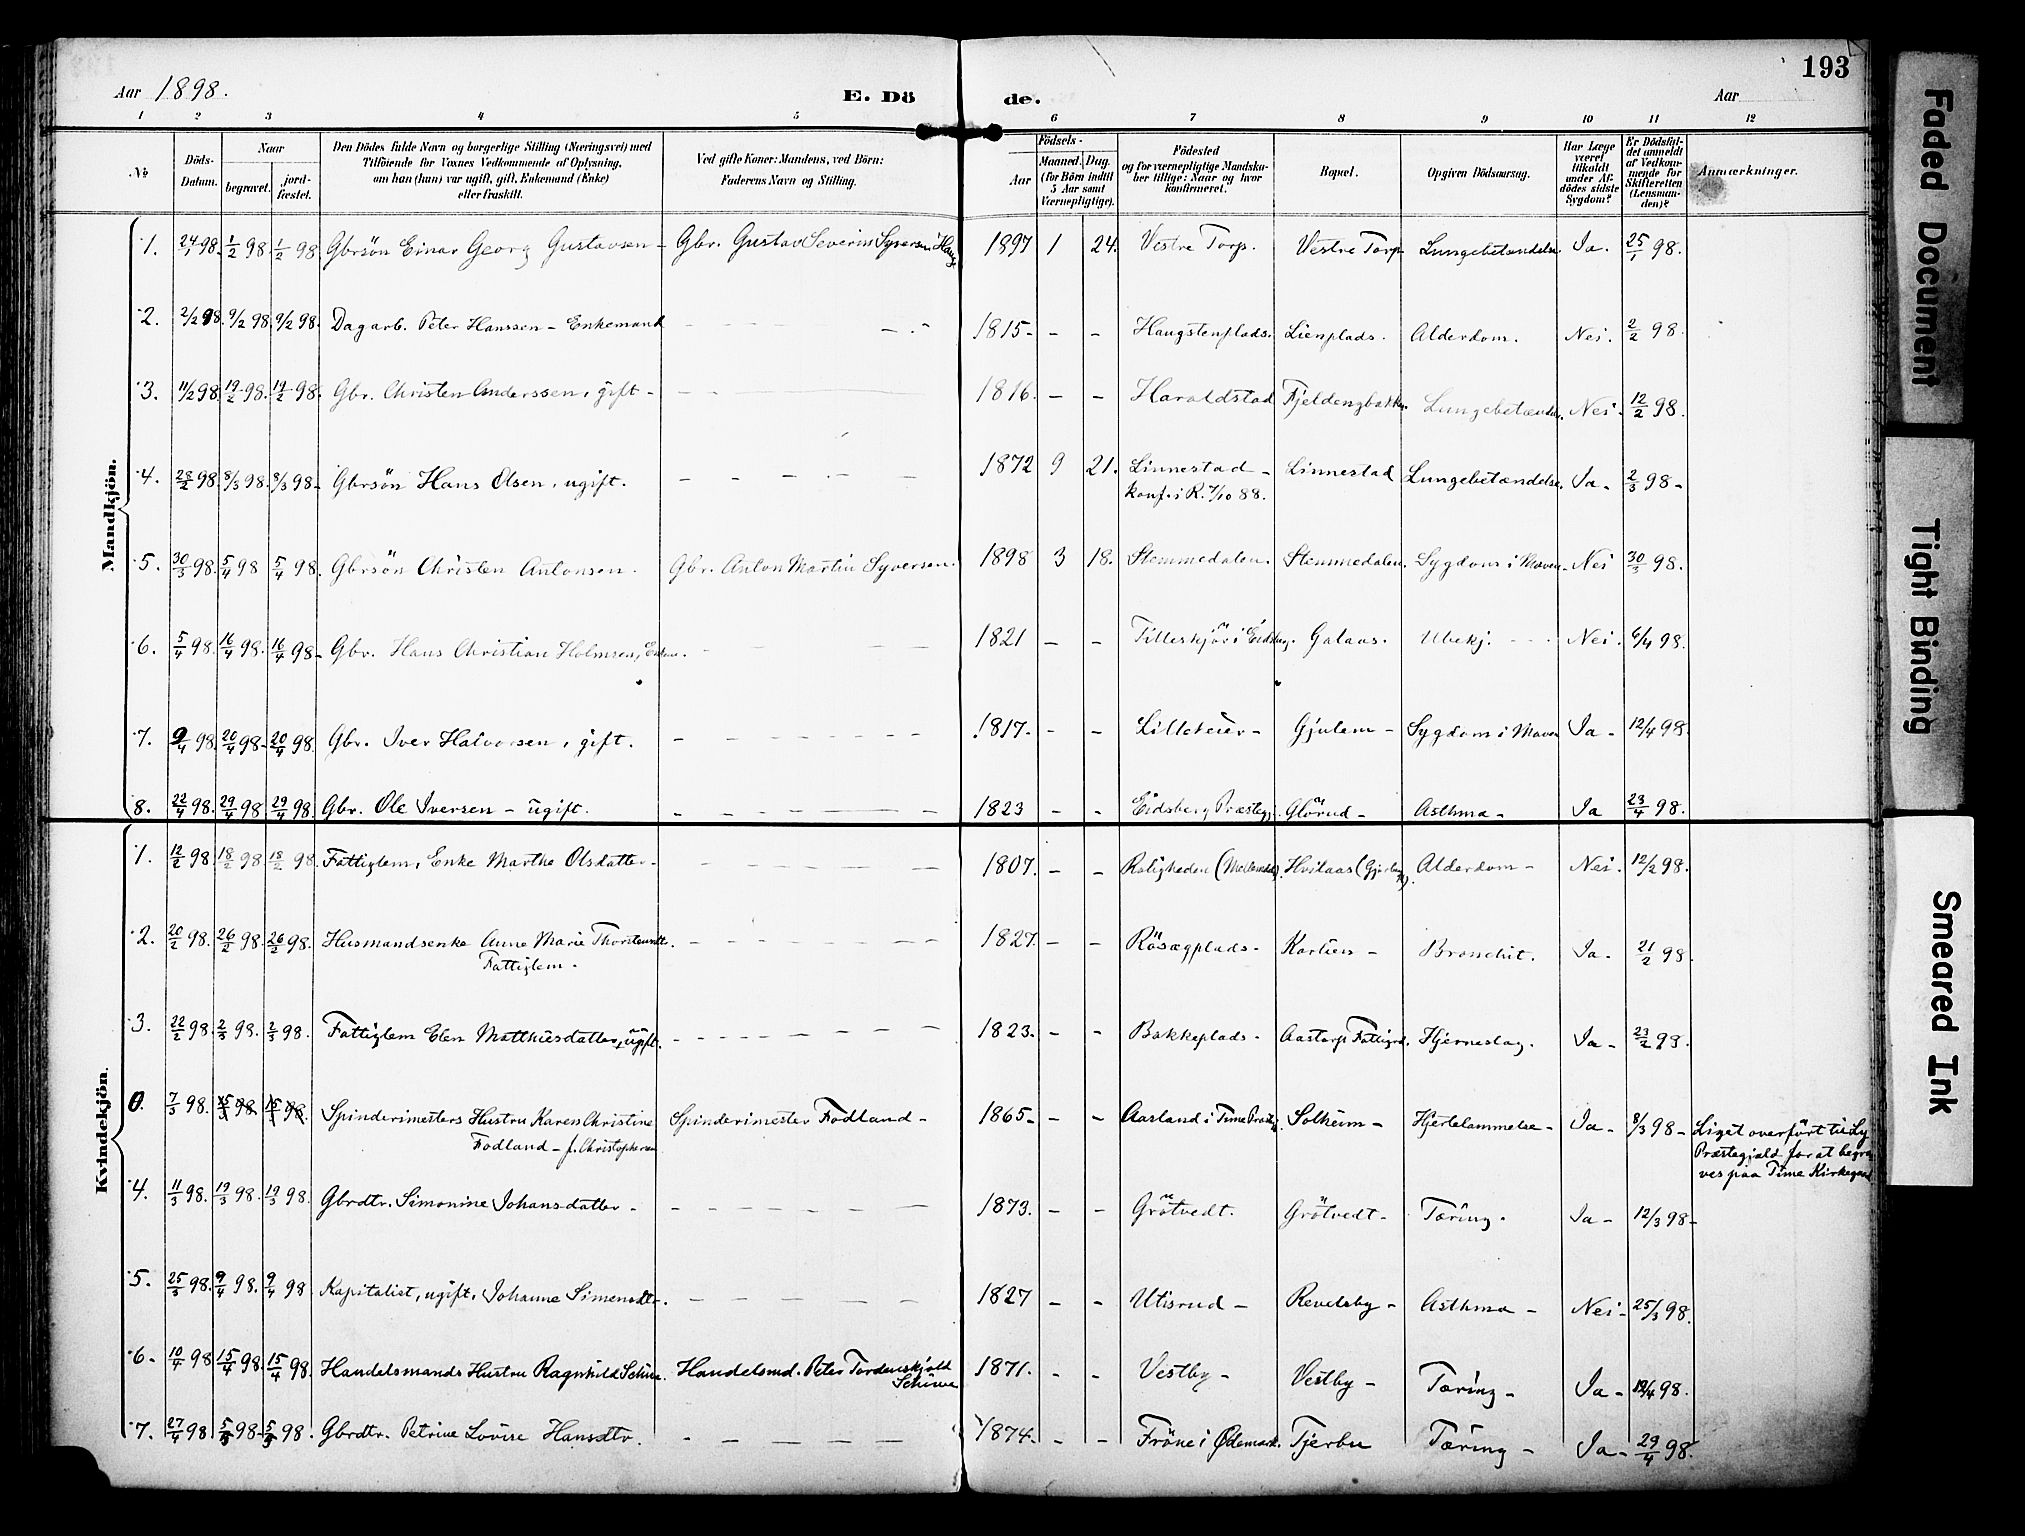 193
Aar 1898.
E. Döde.
Aar
1 2 3 4 5 6 7 8 9 10 11 12
№
Döds-Datum.
Naar
begravet.
jordfæstet.
Den Dödes fulde Navn og borgerlige Stilling (Næringsvei) med
Tilföiende for Voxnes Vedkommende af Oplysning,
om han (hun) var ugift, gift, Enkemand (Enke)
eller fraskilt.
Ved gifte Koner: Mandens, ved Börn:
Faderens Navn og Stilling.
Födsels-
Aar
Maaned. Dag.
(for Börn indtil
5 Aar samt
Værnepligtige).
Födested
og for værnepligtige Mandskaber tillige: Naar og hvor
konfirmeret.
Bopæl.
Opgiven Dödsaarsag.
Har Læge
været
tilkaldt
under Afdödes sidste
Sygdom?
Er Dödsfaldet anmeldt
af Vedkommende for
Skifteretten
(Lensmanden)?
Anmærkninger.
Mandkjön.
1. 24/1 98. 1/2 98. 1/2 98 Gbrsön Einar Georg Gustavsen - Gbr. Gustav Severin Syversen Haug 1897 1 24. Vestre Torp. Vestre Torp Lungebetændelse. Ja. 25/1 98.
2. 2/2 98. 9/2 98. 9/2 98. Dagarb. Peter Hanssen - Enkemand 1815 - - Haugstenplads. Lienplads. Alderdom. Nei. 2/2 98.
3. 11/2 98. 19/2 98. 19/2 98. Gbr. Christen Anderssen, gift - 1816. - - Haraldstad Fjeldengbakken. Lungebetændelse. Nei. 12/2 98.
4. 28/2 98. 8/3 98. 8/3 98. Gbrsön Hans Olsen, ugift. 1872 9 21. Linnestad - Linnestad Lungebetændelse. Ja - 2/3 98 -
konf. i R. 7/10 88.
5. 30/3 98. 5/4 98 5/4 98. Gbrsön Christen Antonsen. Gbr. Anton Martin Syversen. 1898 3 18. Stemmedalen. Stemmedalen. Sygdom i Maven. Nei 30/3 98.
6. 5/4 98. 16/4 98. 16/4 98 - Gbr. Hans Christian Holmsen, Enkem. 1821 - - i Eidsberg. Galaas. Ubekj. - Nei. 6/4 98.
7. 9/4 98. 20/4 98. 20/4 98. Gbr. Iver Halvorsen, gift. 1817 - - - Lilleheier - Gjulem - Sygdom i Maven Ja - 12/4 98.
8. 22/4 98. 29/4 98 29/4 98. Gbr. Ole Iversen - ugift. 1823 - - Eidsberg Præstegj. Glörud - Asthma - Ja 23/4 98.
Kvindekjön.
1. 12/2 98. 18/2 98 18/2 98. Fattiglem, Enke Marthe Olsdatter - 1807. - - Roligheden Hvilaas Alderdom - Nei. 12/2 98.
2. 20/2 98. 26/2 98. 26/2 98. Husmandsenke Anne Marie Thorstensdt. 1827. - - Rösægplads - Karlien - Bronchit. Ja - 21/2 98.
Fattiglem -
3. 22/2 98. 2/3 98. 2/3 98. Fattiglem Elen Matthiesdatter, ugift. 1823. - - Bakkeplads - Aastorp Fattigrd. Hjerneslag. Ja - 23/2 98.
0. 7/3 98. 15/3 98. 15/3 98. Spinderimesters Hustru Karen Christine Spinderimester Fodland - 1865 - - - Aasland i Time Præstegj. Solheim - Hjertelammelse - Ja - 8/3 98 - Liget overfört til Ly
Fodland - f. Christophersen Præstegjæld for at begra-
ves paa Time Kirkegaard
4. 11/3 98. 19/3 98. 19/3 98. Gbrdtr. Simonine Johansdatter - 1873. - - Grötvedt. Grötvedt - Tæring. Ja - 12/3 98 -
5. 25/3 98. 9/4 98. 9/4 98 Kapitalist, ugift, Johanne Simensdtr. 1827 - - Utisrud - Revelsby - Asthma - Nei - 25/3 98.
6 - 10/4 98 15/4 98. 15/4 98. Handelsmands Hustru Ragnhild Schive. Handelsmd. Peter Tordenskjold 1871. - - Vestby - Vestby - Tæring - Ja - 12/4 98.
Schive
7. 27/4 98 5/5 98 - 5/5 98. Gbrdtr. Petrine Lovise Hansdtr. 1874 - - - Fröne i Ødemark. Tjerbu Tæring - Ja - 29/4 98.
Faded Document
Tight Binding
Smeared Ink